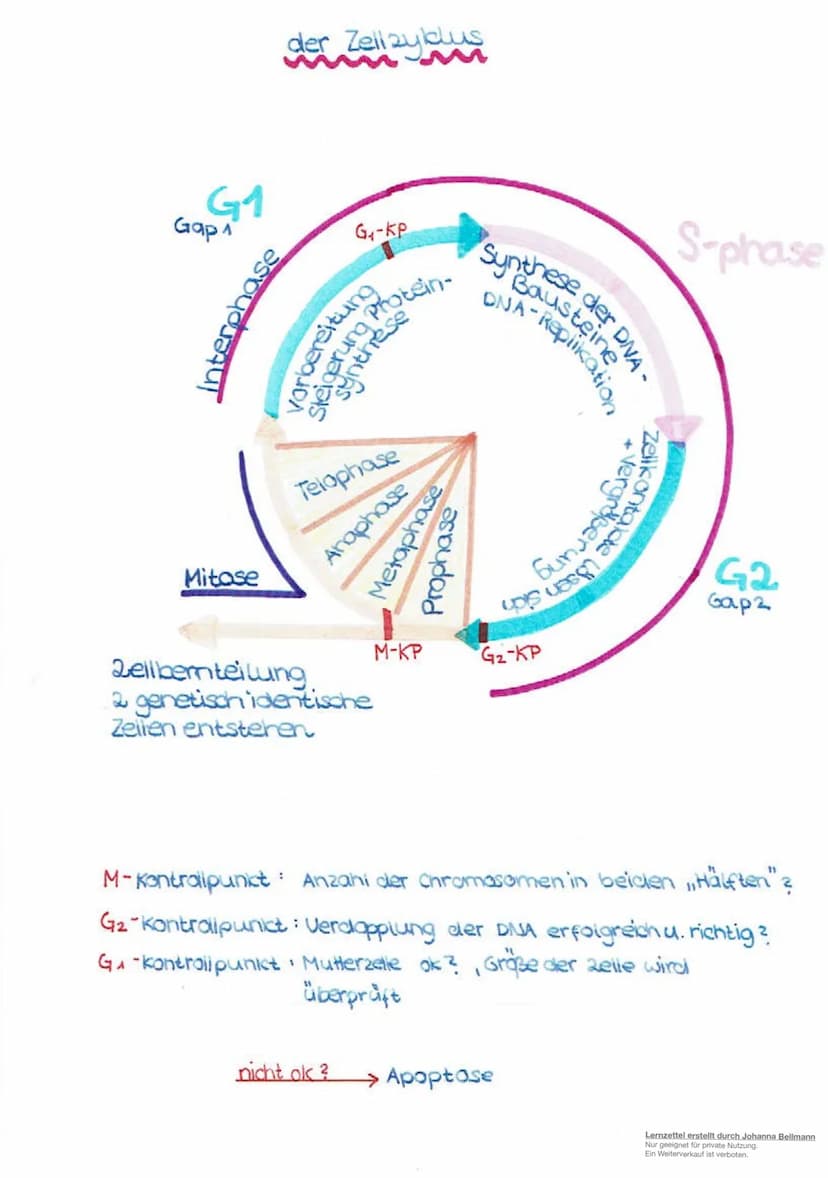 der Zellzyklus
G1
Gap 1
Interphase
G₁-KP
Vorbereitung
Steigerung Protein-
synthese
S-phase
Synthese der DNA-
Bausteine
DNA-Replikation
Zellkontakte lösen sich
+ Vergrößerung
G2
Gap 2
G₂-KP
Prophase
Metaphase
Anaphase
Telophase
Mitose
M-KP
Zellkernteilung
2 genetisch identische
Zellen entstehen
M-Kontrollpunkt: Anzahl der Chromosomen in beiden „Hälften"?
G₂-Kontrollpunkt: Verdopplung der DNA erfolgreich u. richtig?
G₁-Kontrollpunkt: Mutterzelle ok?, Größe der Zelle wird
überprüft
nicht ok? → Apoptose
Lernzettel erstellt durch Johanna Bellmann
Nur geeignet für private Nutzung.
Ein Weiterverkauf ist verboten.